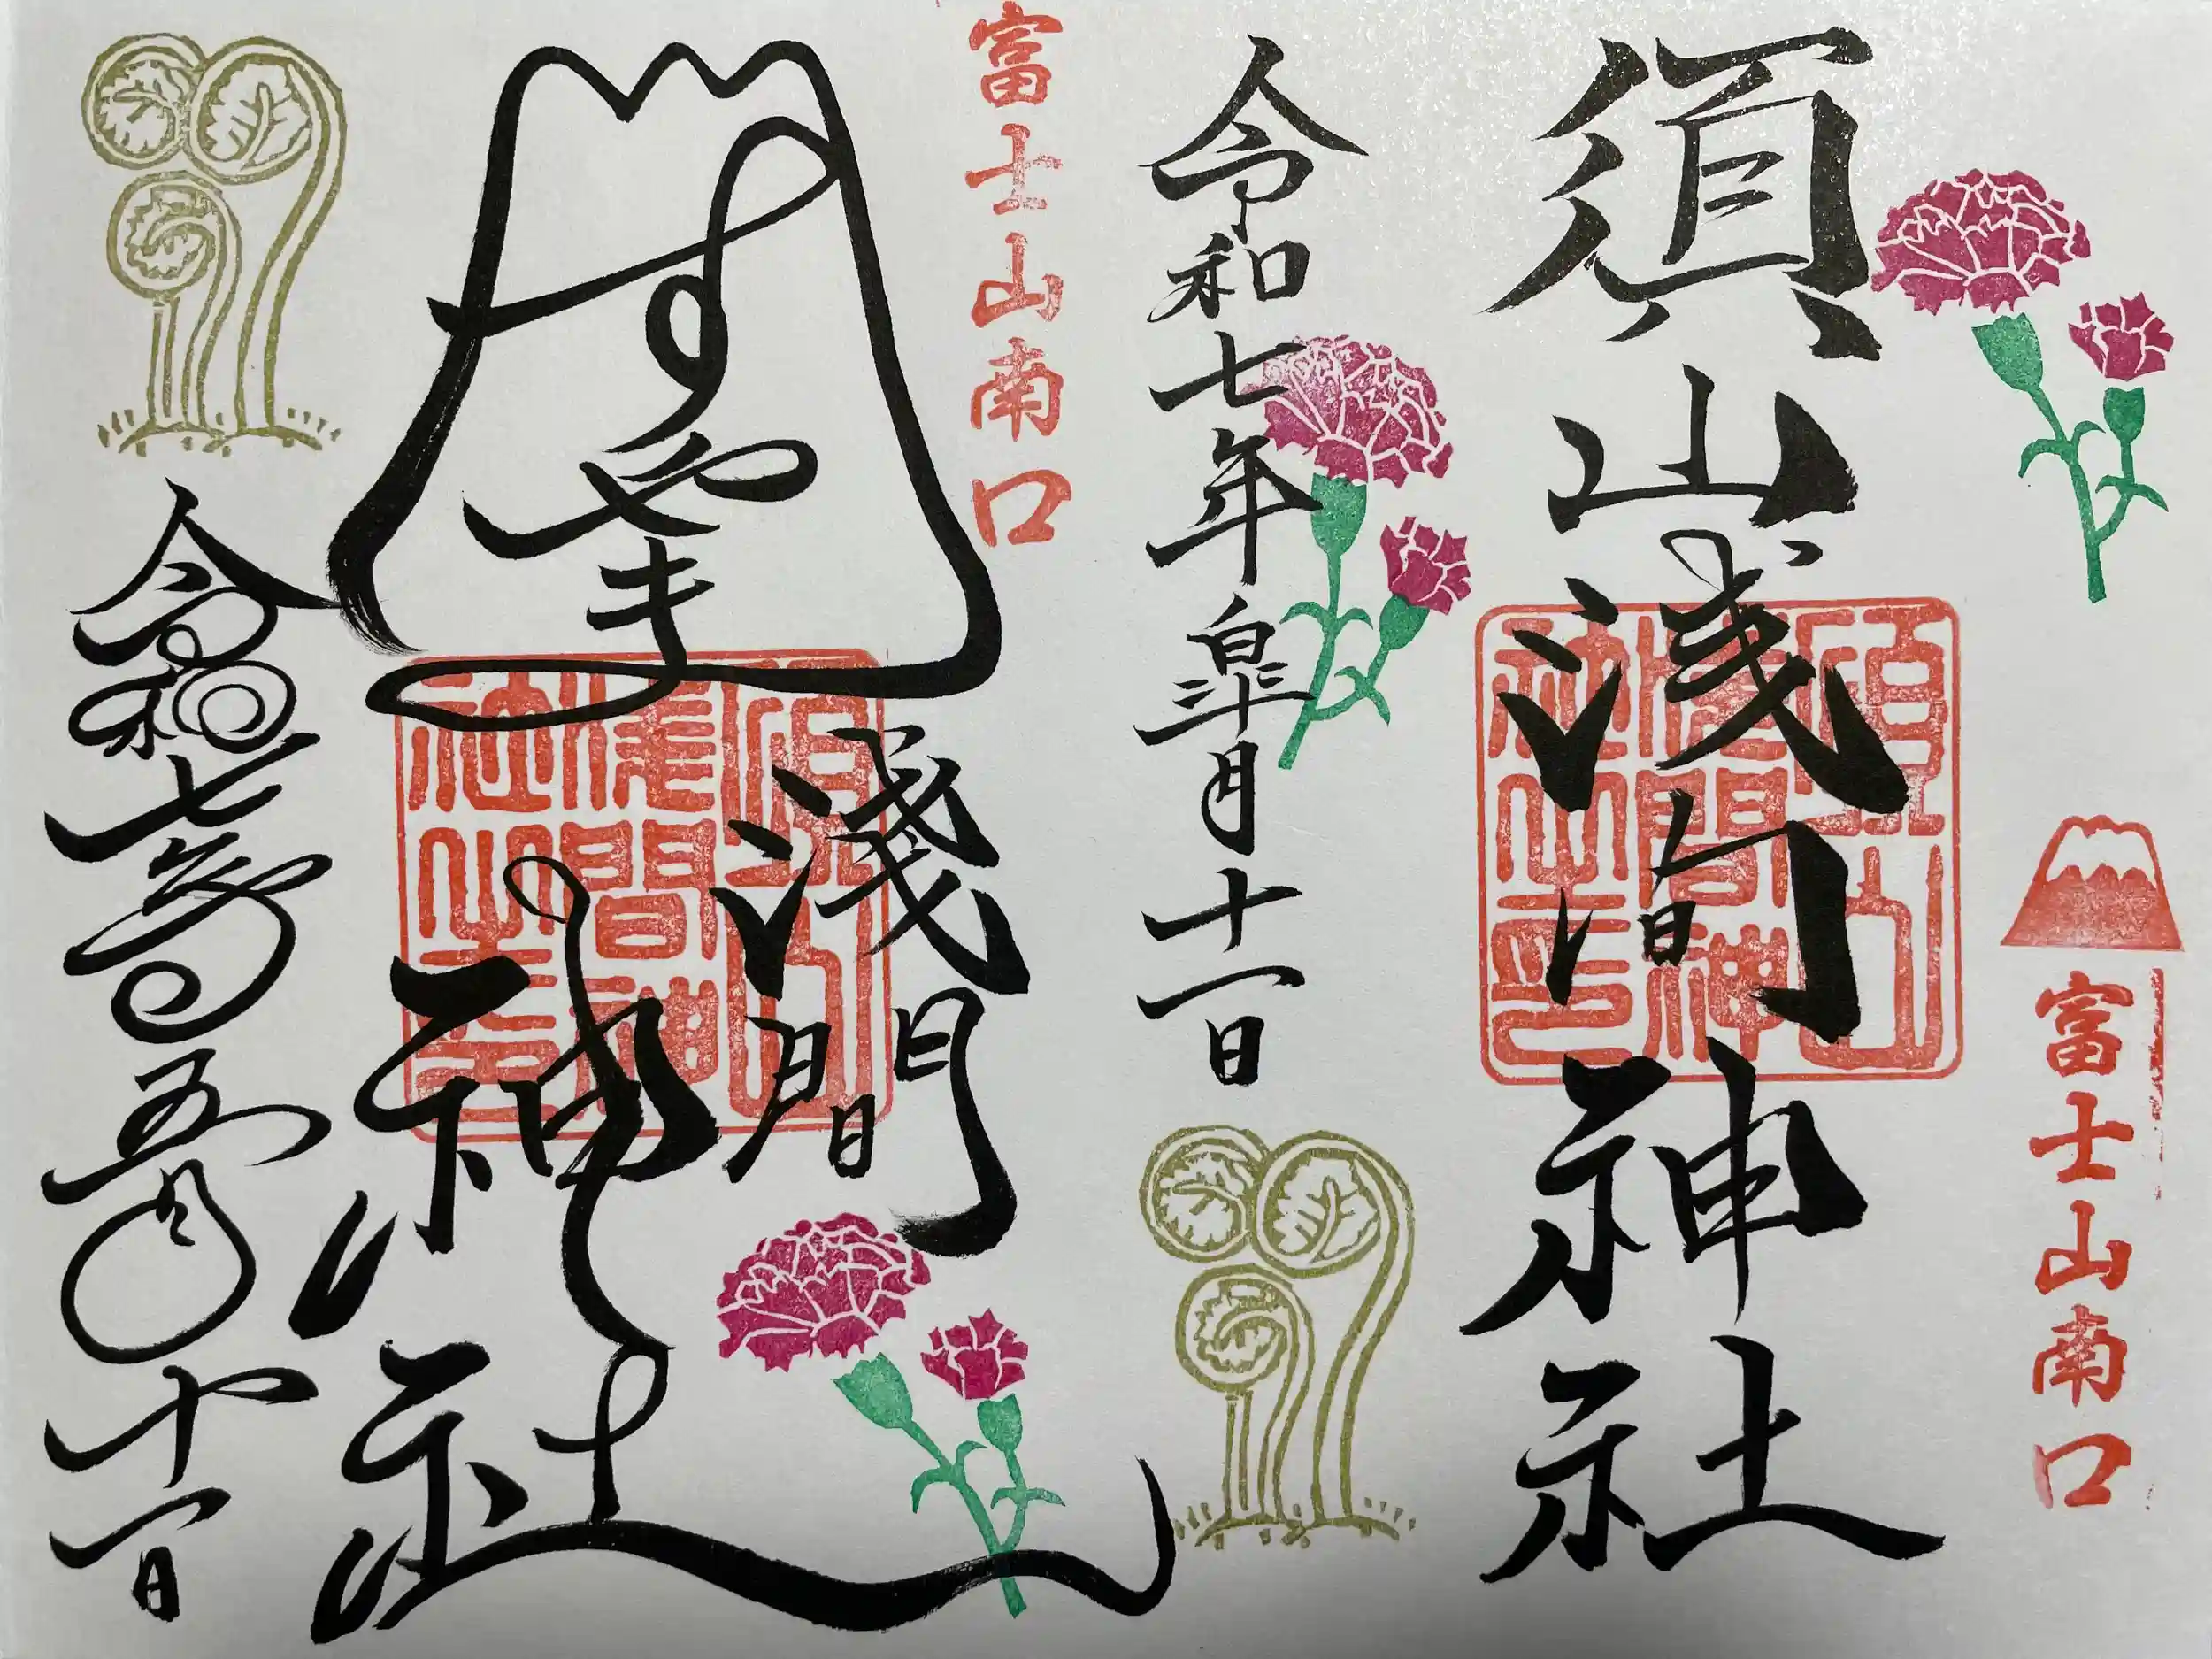 富士山南口
須山浅间神社
須山淺間神社之印
令和七年皐月十一日
富士山南口
すやま
淺間
神社
須山淺間神社之印
令和七年五月十一日